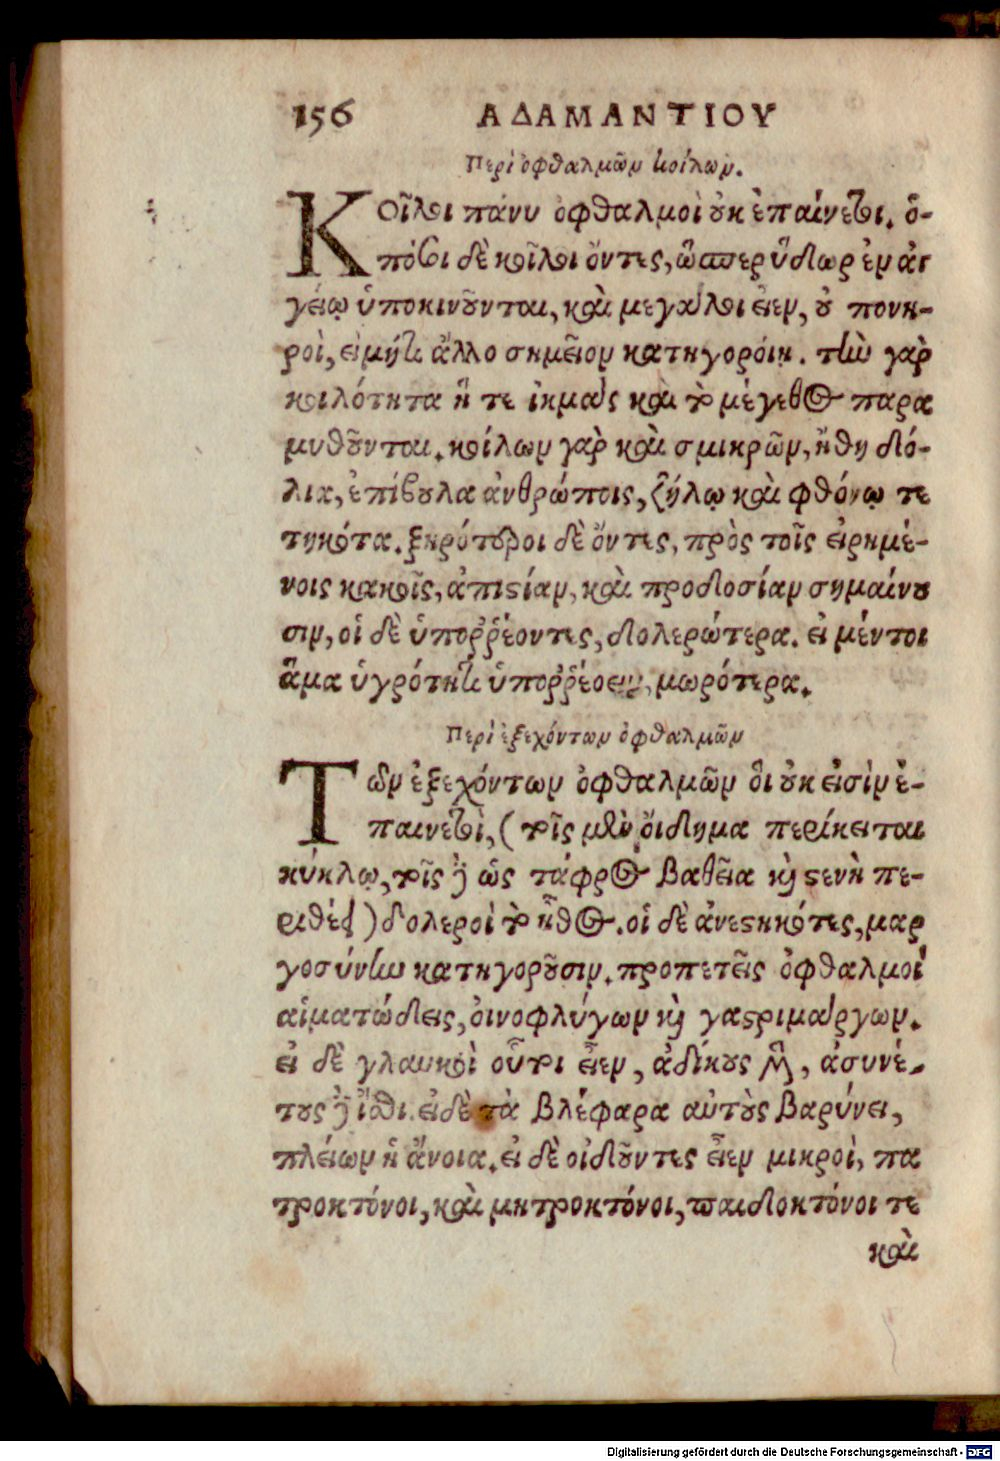 156 ΑΔΑΜΑΝΤΙΟΥ
Περὶ ὀφθαλμῶν κοίλων.
ΚΟῖλοι πάνυ ὀφθαλμοὶ οὐκ ἐπαίνετοι. ὁ-
πόσοι δὲ κοῖλοι ὄντες, ὥσπερ ὕδωρ ἐν ἀγ
γείῳ ὑποκινοῦνται, καὶ μεγάλοι εἶεν, οὐ πονη-
ροὶ, εἰ μήτι ἄλλο σημεῖον κατηγορόιη. τὴν γὰρ
κοιλότητα ἥ τε ἰκμὰς καὶ τὸ μέγεθος παρα
μυθοῦνται. κοίλων γὰρ καὶ σμικρῶν, ἤθη δό-
λια, ἐπίβουλα ἀνθρώποις, ζήλῳ καὶ φθόνῳ τε
τηκότα. ξηρότεροι δὲ ὄντες, πρὸς τοῖς εἰρημέ-
νοις κακοῖς, ἀπιστίαν, καὶ προδοσίαν σημαίνου
σιν, οἱ δὲ ὑποῤῥέοντες, δολερώτερα. εἰ μέντοι
ἅμα ὑγρότητι ὑποῤῥέοειν, μωρότερα.
Περὶ ἐξεχόντων ὀφθαλμῶν
Τῶν ἐξεχόντων ὀφθαλμῶν ὅι οὐκ εἰσὶν ἐ-
παινετοὶ, (τοῖς μὲν ὄιδημα περίκειται
κύκλῳ, τοῖς δὲ ὡς τάφρος βαθεῖα καὶ στενὴ πε-
ριθέει) δολεροὶ τὸ ἦθος. οἱ δὲ ἀνεστηκότες, μαρ
γοσύνην κατηγοροῦσιν. προπετεῖς ὀφθαλμοὶ
αἱματώδεις, ὀινοφλύγων καὶ γαστριμάργων.
εἰ δὲ γλαυκοὶ οὗτοι εἶεν, ἀδίκους μὲν, ἀσυνέ-
τους δὲ ἴσθι. εἰ δὲ τὰ βλέφαρα αὐτοὺς βαρύνει,
πλείων ἡ ἄνοια. εἰ δὲ οἰδοῦντες εἶεν μικροὶ, πα
τροκτόνοι, καὶ μητροκτόνοι, παιδοκτόνοι τε
καὶ
Digitalisierung gefördert durch die Deutsche Forschungsgemeinschaft - DFG